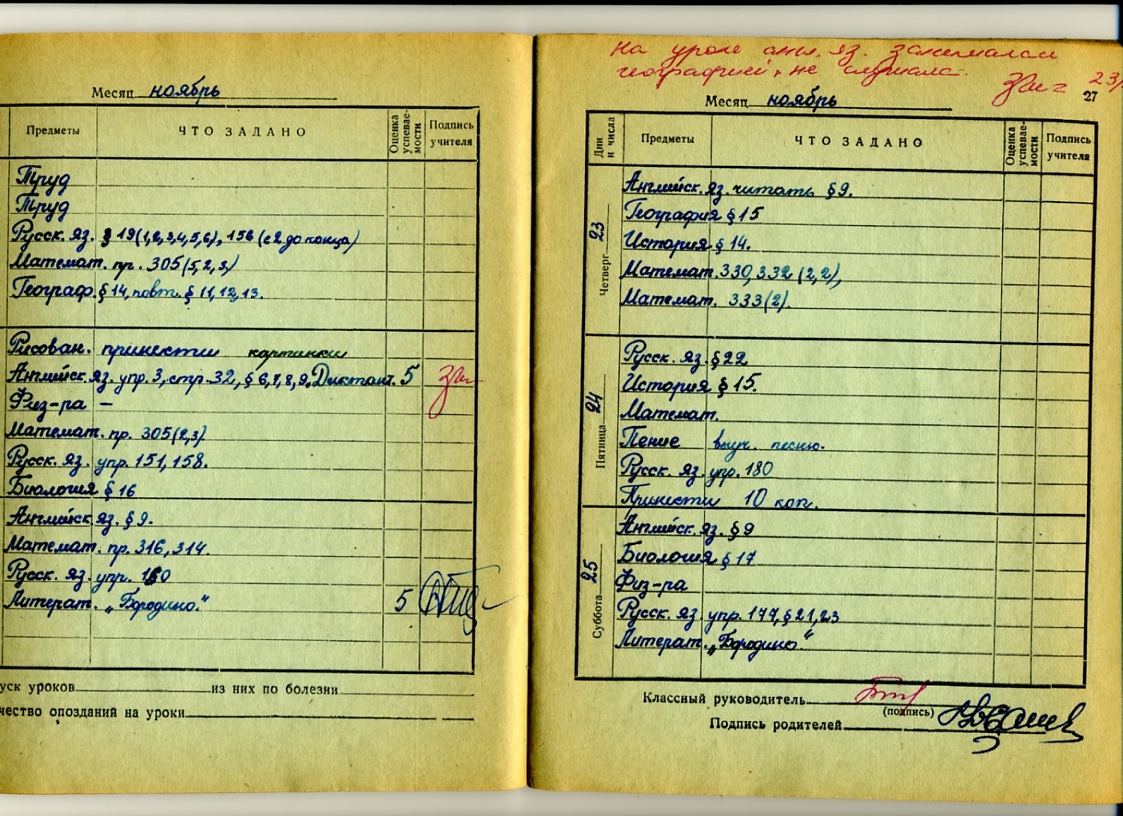 Месяц ноябрь
Предметы ЧТО ЗАДАНО Оценка успевае-мости Подпись учителя
Труд
Труд
Русск. яз. § 19(1,2,3,4,5,6), 156 (с 2 до конца)
Математ. пр. 305(5,2,3)
Географ. § 14, повт. § 11,12,13.
Рисован. принести картинки
Английск. яз. упр. 3, стр. 32, § 6,7,8,9, Диктант. 5
Физ-ра —
Математ. пр. 305(2,3)
Русск. яз. упр. 151, 158.
Биология § 16
Английск. яз. § 9.
Математ. пр. 316, 314.
Русск. яз. упр. 160
Литерат. „Бородино." 5
уск уроков из них по болезни
чество опозданий на уроки
На уроке анг. яз. занималась
географией, не слушала.
23/
27
Месяц ноябрь
Дни и числа Предметы ЧТО ЗАДАНО Оценка успевае-мости Подпись учителя
Четверг 23
Английск. яз. читать § 9.
География § 15
История § 14.
Математ. 330, 332 (2,2),
Математ. 333(2).
Пятница 24
Русск. яз. § 22
История § 15.
Математ.
Пение выуч. песню.
Русск. яз. упр. 180
Принести 10 коп.
Суббота 25
Английск. яз. § 9
Биология § 17
Физ-ра
Русск. яз. упр. 177, § 21, 23
Литерат. „Бородино."
Классный руководитель
(подпись)
Подпись родителей